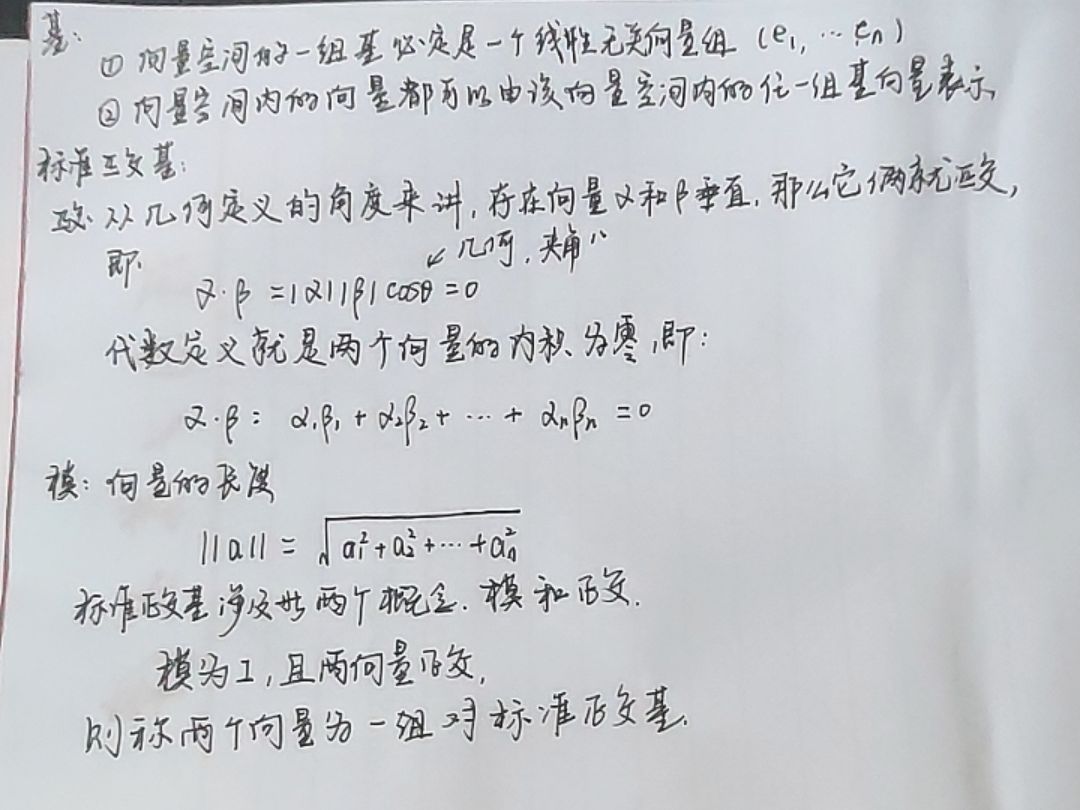 基:
① 向量空间的一组基必定是一个线性无关向量组 (e₁, … eₙ)
② 向量空间内的向量都可以由该向量空间内的任一组基向量表示
标准正交基:
正交: 从几何定义的角度来讲, 存在向量α和β垂直, 那么它俩就正交,
即: ↙几何, 夹角
α·β = |α||β| cosθ = 0
代数定义就是两个向量的内积为零, 即:
α·β: α₁β₁ + α₂β₂ + … + αₙβₙ = 0
模: 向量的长度
||a|| = √(a₁² + a₂² + … + aₙ²)
标准正交基涉及此两个概念. 模和正交.
模为1, 且两向量正交,
则称两个向量为一组对标准正交基.